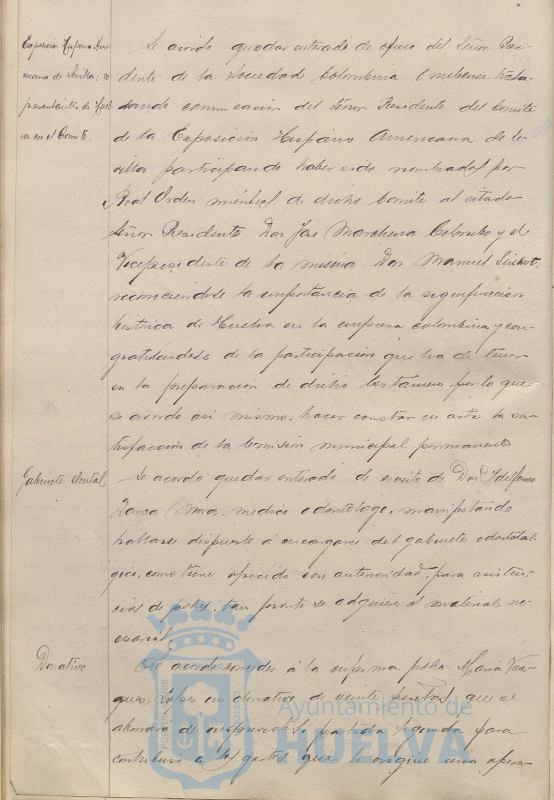 Exposicion Hispano-Ame-
ricana de Sevilla; re
presentantes de Huel
va en el Comite.
Se acordo quedar enterado de oficio del Señor Presi-
dente de la Sociedad Colombina Onubense trasla-
dando comunicacion del Señor Presidente del Comite
de la Exposicion Hispano Americana de Se-
villa participando haber sido nombrados por
Real Orden miembros de dicho Comite al citado
Señor Presidente Don José Marchena Colombo y el
Vicepresidente de la misma Don Manuel Siurot,
reconociendo la importancia de la significacion
historica de Huelva en la empresa colombina y con-
gratulandose de la participacion que ha de tener
en la preparacion de dicho certamen, por lo que
se acordo asi mismo, hacer constar en acta la sa-
tisfaccion de la Comision municipal permanente
Gabinete dental
Se acordo quedar enterado de escrito de Don Ildelfonso
medico odontologo, manifestando
hallarse dispuesto á encargarse del gabinete odontolo-
gico, como tiene ofrecido con anterioridad, para asisten-
cias de pobres, tan pronto se adquiera el material ne-
cesario.
Donativo
Se acordo conceder á la enferma pobre Maria Vaz-
quez Lopez un donativo de veinte pesetas, que se
abonará de imprevistos partida segunda para
contribuir a los gastos que le origine una opera-
Ayuntamiento de
HUELVA